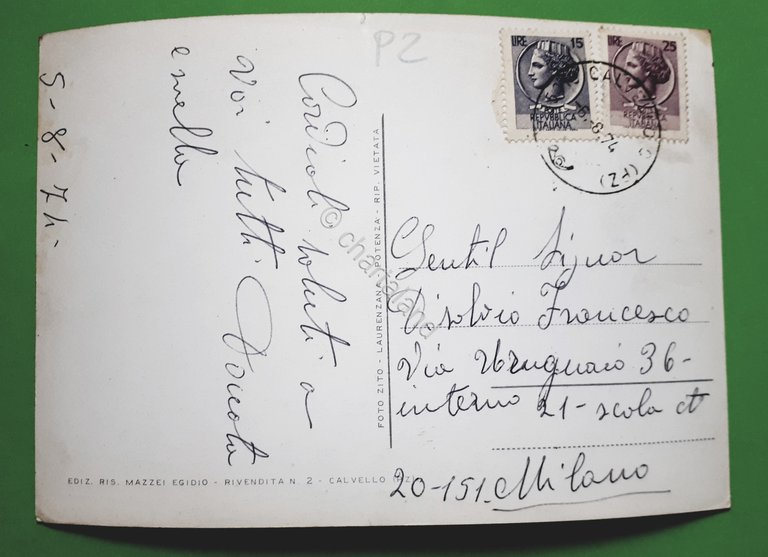 PZ
LIRE 15
REPVBBLICA
ITALIANA
LIRE 25
REPVBBLICA
ITALIANA
CALVELLO (PZ)
-8-74
5-8-74-
Cordiali saluti a
voi tutti Donata
e nella
© chartaland
FOTO ZITO - LAURENZANA - POTENZA - RIP. VIETATA
Gentil Signor
Disolvio Francesco
Via Uruguaio 36-
interno 21- scala
20-151. Milano
EDIZ. RIS. MAZZEI EGIDIO - RIVENDITA N. 2 - CALVELLO (PZ)